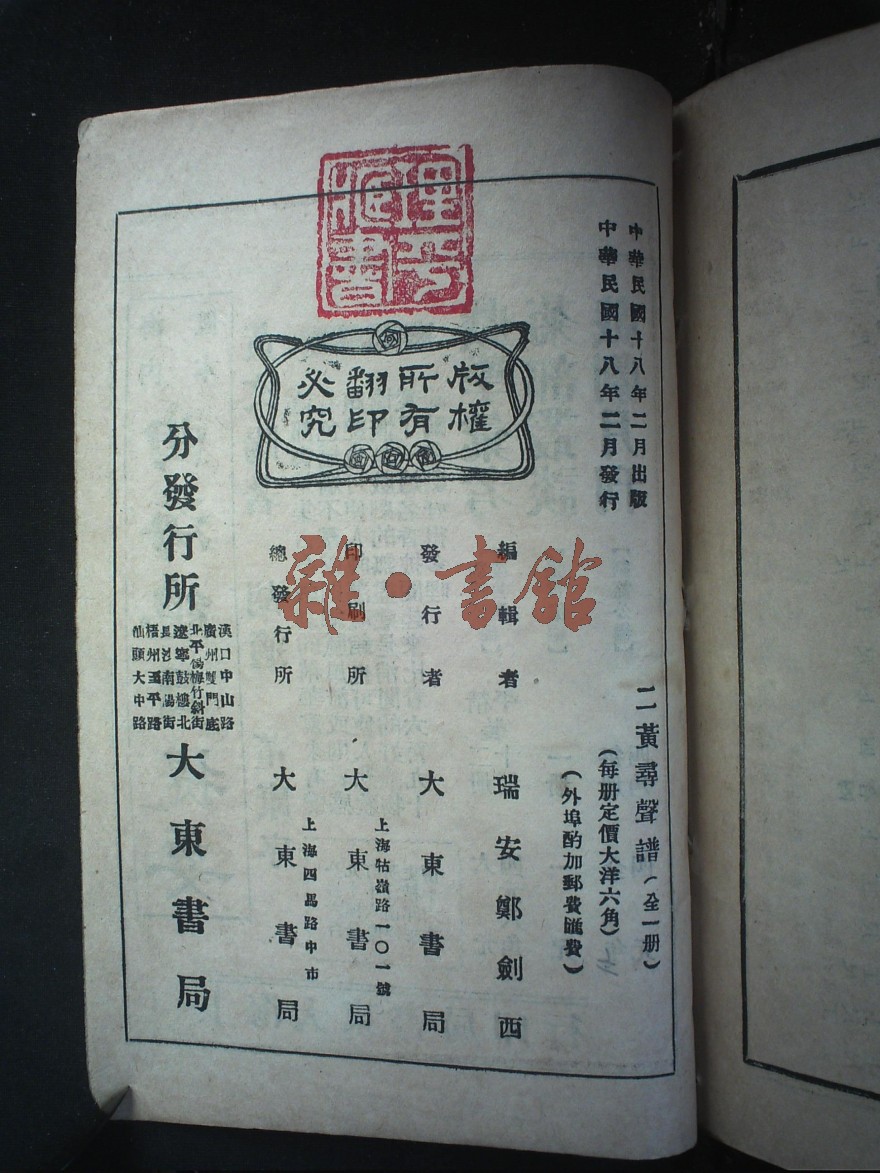 中華民國十八年二月出版
中華民國十八年二月發行
二黃尋聲譜（全一册）
（每册定價大洋六角）
（外埠酌加郵費匯費）
編輯者 瑞安鄭劍西
發行者 大東書局
上海牯嶺路一〇一號
印刷所 大東書局
上海四馬路中市
總發行所 大東書局
分發行所
漢口中山路
廣州雙門底
北平楊梅竹斜街
遼寧鼓樓北
長沙南陽街
梧州五平路
汕頭大中路
大東書局
版權
所有
翻印
必究
雜·書館
藏書